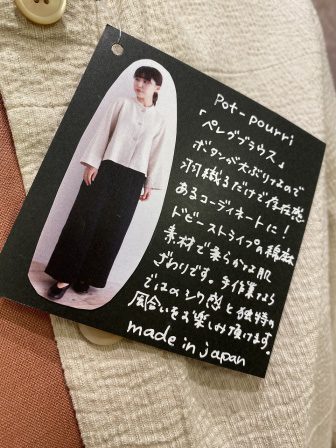 Pot-pourri
「ペレグブラウス」
ボタンが大ぶりなので
羽織るだけで存在感
あるコーディネートに!
ドビーストライプの綿麻
素材で柔らかな肌
ざわりです。手作業なら
ではのシワ感と独特の
風合いをお楽しみ頂けます。
made in japan